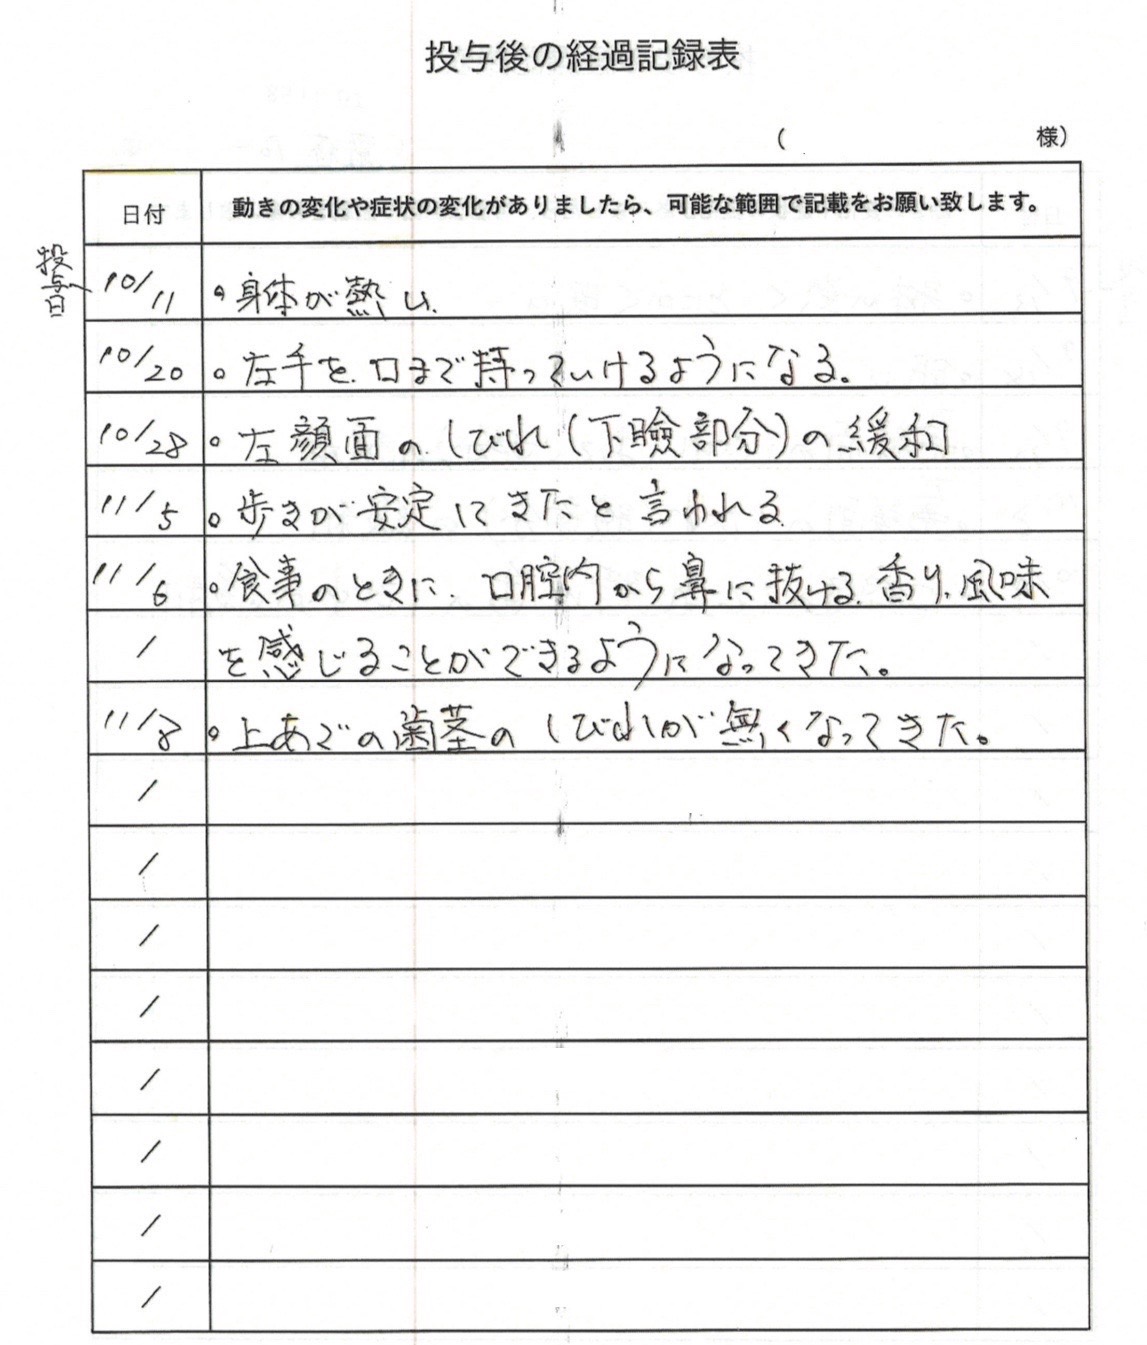 投与後の経過記録表
( 様)
日付 動きの変化や症状の変化がありましたら、可能な範囲で記載をお願い致します。
投与日 10/11 ・身体が熱い
10/20 ・左手を口まで持っていけるようになる。
10/28 ・左顔面のしびれ(下瞼部分)の緩和
11/5 ・歩きが安定してきたと言われる
11/6 ・食事のときに、口腔内から鼻に抜ける香り、風味
/ を感じることができるようになってきた。
11/8 ・上あごの歯茎のしびれが無くなってきた。
/
/
/
/
/
/
/
/